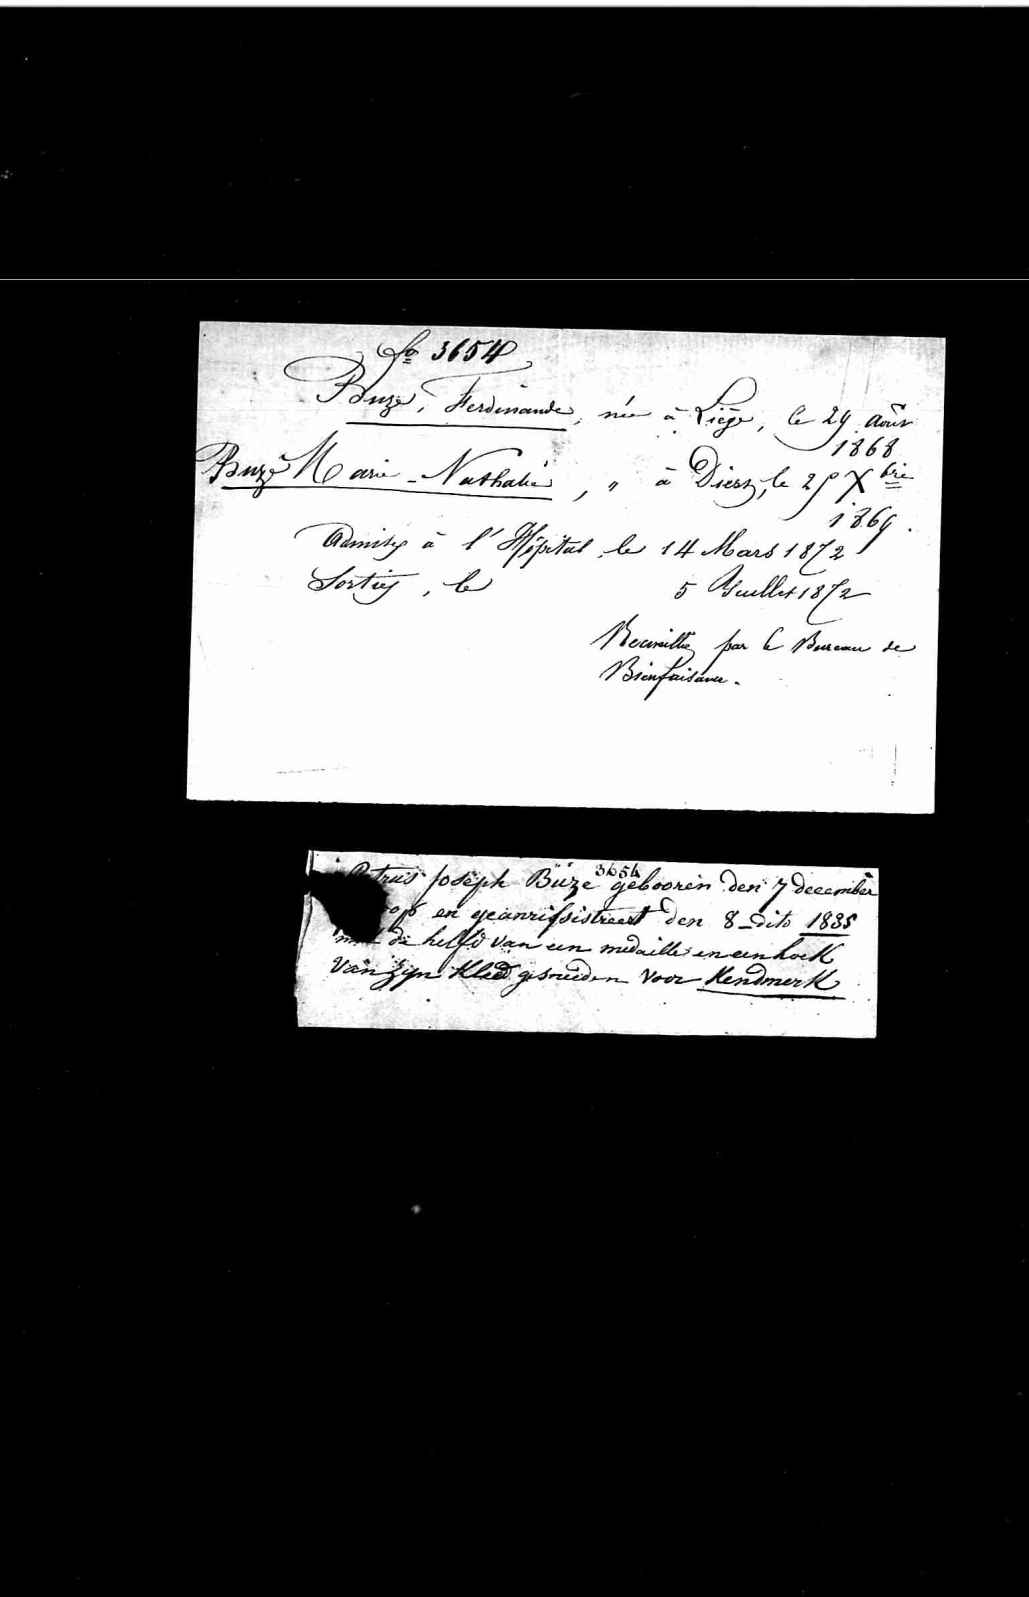 fo 3654
Buzé, Ferdinande, née à Liège, le 29 Août
1868
Buzé Marie-Nathalie, " à Diest, le 25 Xbre
1869.
Admises à l'Hôpital, le 14 Mars 1872
Sorties, le 5 Juillet 1872
Recueillies par le Bureau de
Bienfaisance.
3654
Petrus Joseph Buze gebooren den 7 december
en geanrifsistreert den 8 dito 1835
met de helfd van een medaille en een hoek
van zyn kleed gesneeden voor Kendmerk